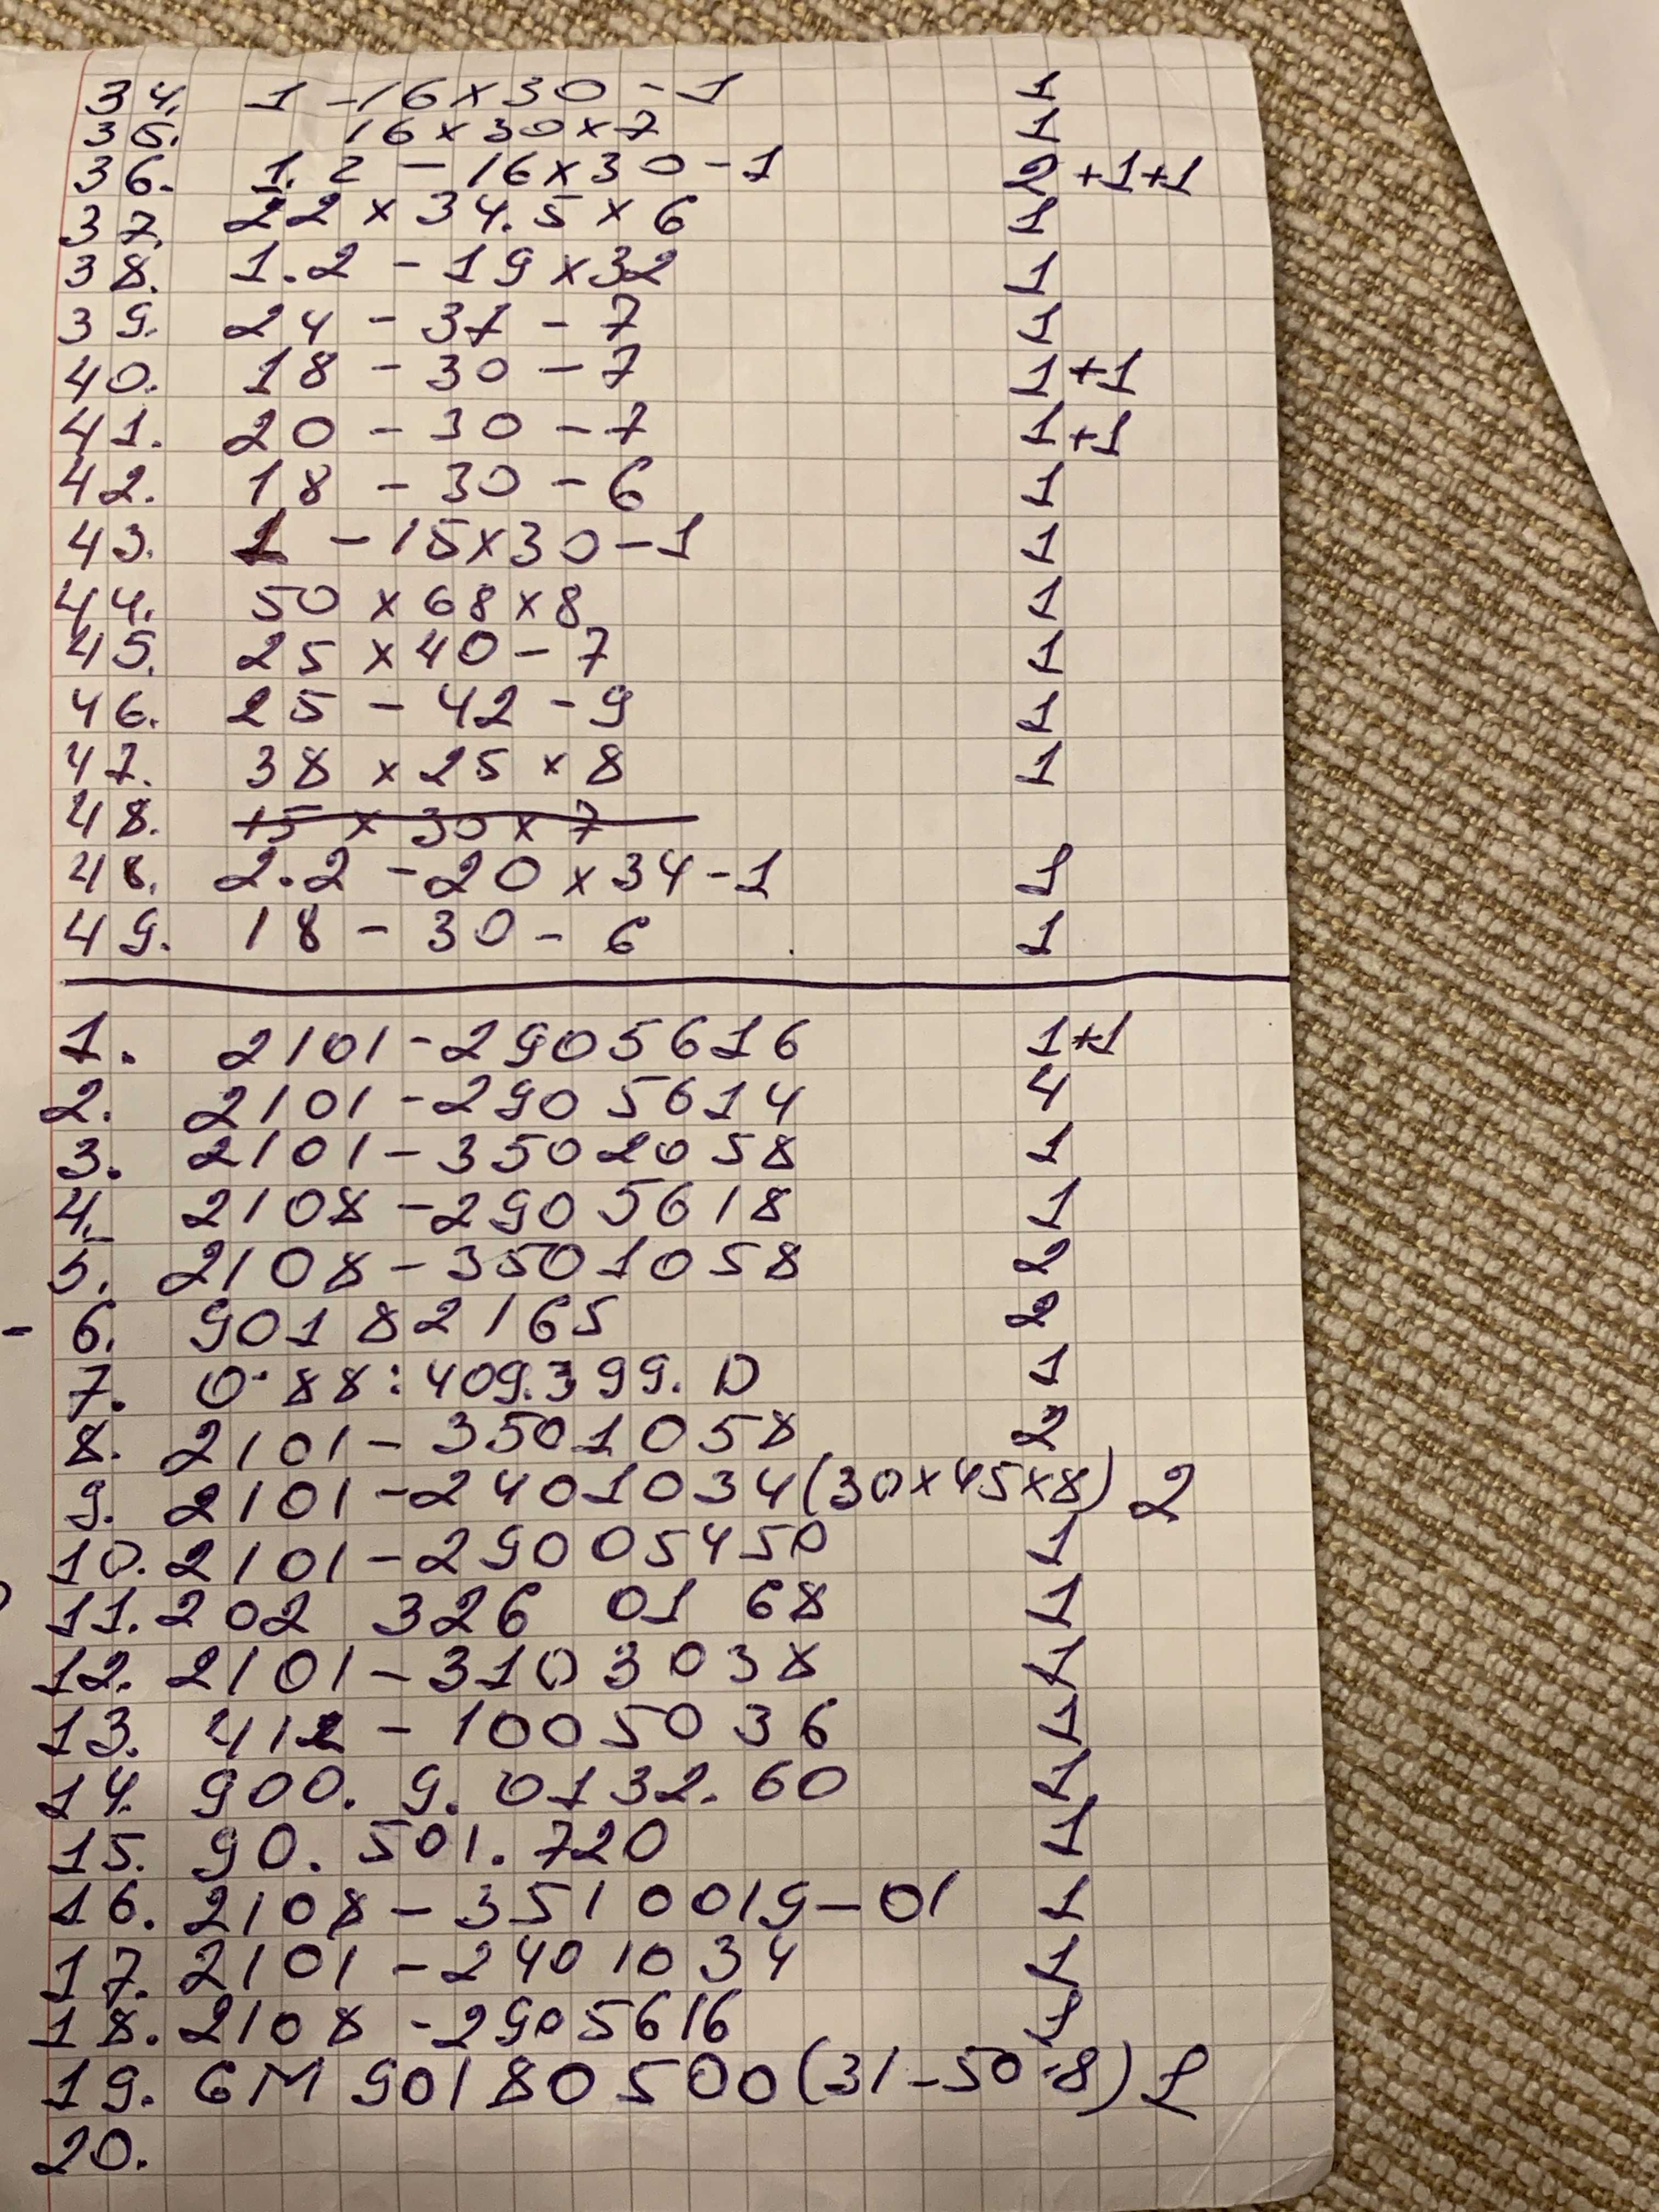 34. 1-16×30-1 1
35. 16×30×7 1
36. 1.2-16×30-1 2+1+1
37. 22×34.5×6 1
38. 1.2-19×32 1
39. 24-37-7 1
40. 18-30-7 1+1
41. 20-30-7 1+1
42. 18-30-6 1
43. 1-15×30-1 1
44. 50×68×8 1
45. 25×40-7 1
46. 25-42-9 1
47. 38×25×8 1
48. 15×30×7
48. 2.2-20×34-1 1
49. 18-30-6 1
1. 2101-2905616 1+1
2. 2101-2905614 4
3. 2101-3502058 1
4. 2108-2905618 1
5. 2108-3501058 2
- 6. 90182165 2
7. 0·88:409.399.D 1
8. 2101-3501058 2
9. 2101-2401034(30×45×8) 2
10. 2101-29005450 1
11. 202 326 01 68 1
12. 2101-3103038 1
13. 412-1005036 1
14. 900.9.0132.60 1
15. 90.501.720 1
16. 2108-3510019-01 1
17. 2101-2401034 1
18. 2108-2905616 1
19. GM 90180500(31-50-8) 2
20.